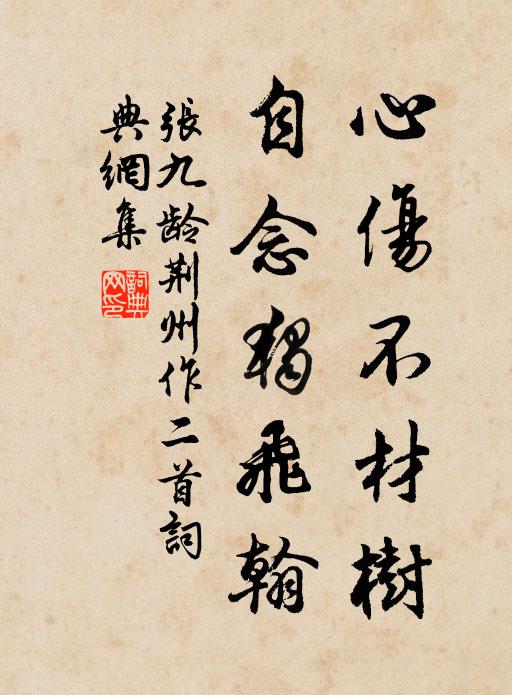 心傷不材樹
自念獨飛翰
張九龄荆州作二首詞
典網集
詞典
网印